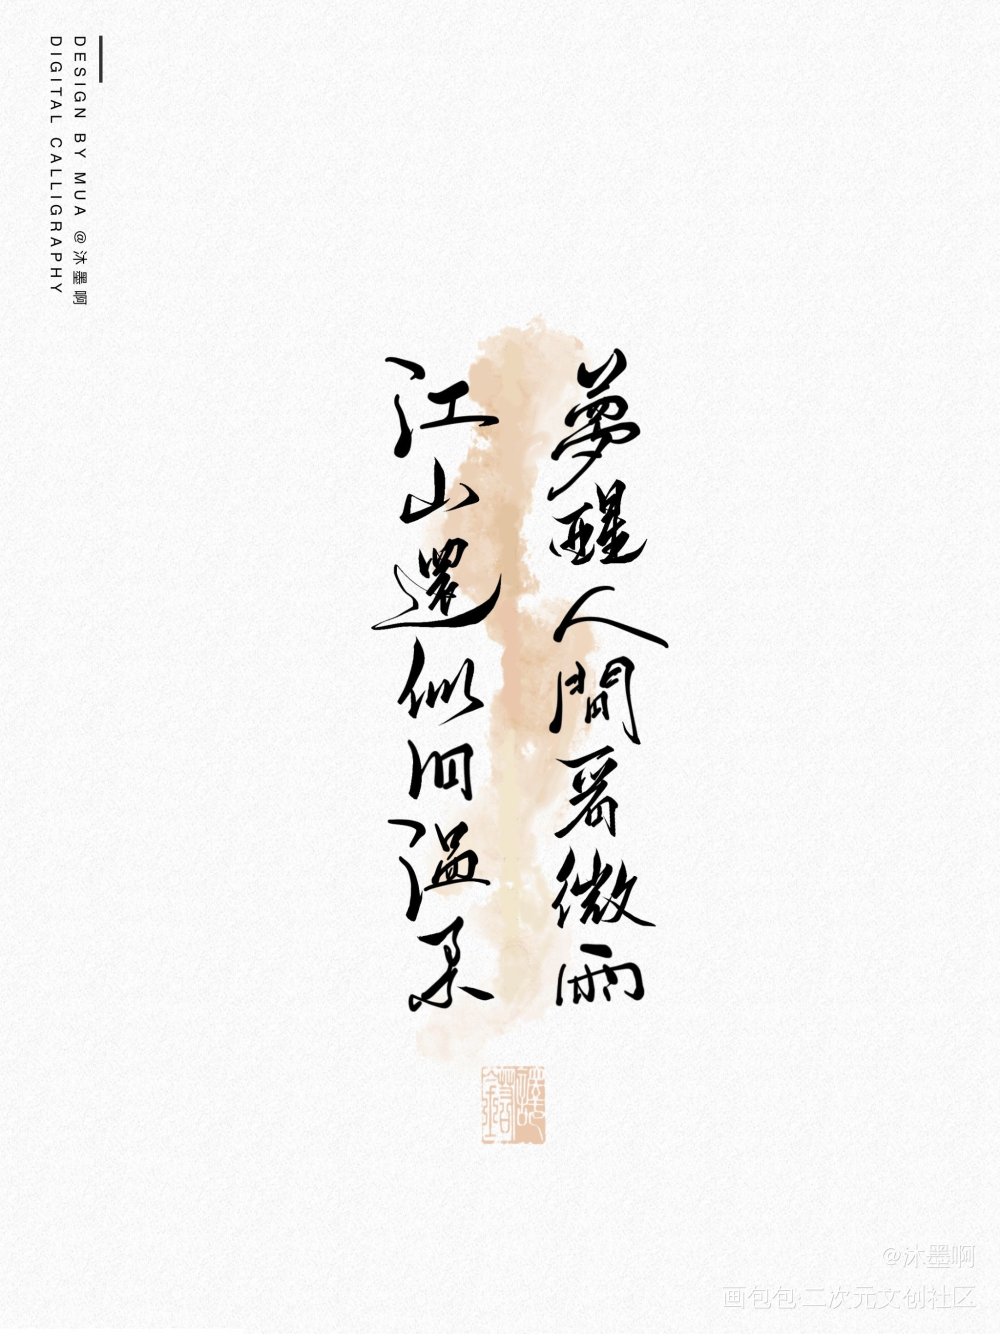 DESIGN BY MUA @沐墨啊
DIGITAL CALLIGRAPHY
夢醒人間看微雨
江山還似旧温柔
@沐墨啊
画包包·二次元文创社区